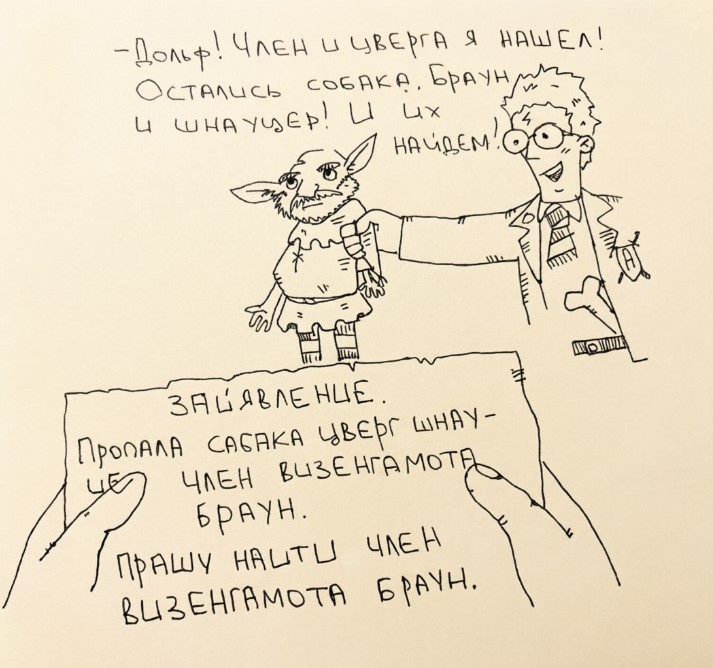 - Дольф! Член и цверга я нашел!
Остались собака, Браун
и шнауцер! И их
найдем!
А
ЗАЙЯВЛЕНИЕ.
ПРОПАЛА САБАКА ЦВЕРГ ШНАУ-
ЦЕ ЧЛЕН ВИЗЕНГАМОТА
БРАУН.
ПРАШУ НАЙТИ ЧЛЕН
ВИЗЕНГАМОТА БРАУН.